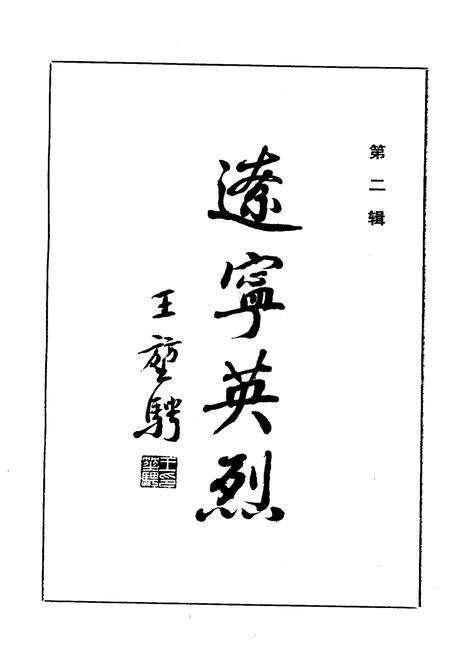 第二辑
遼寧英烈
王堃騁